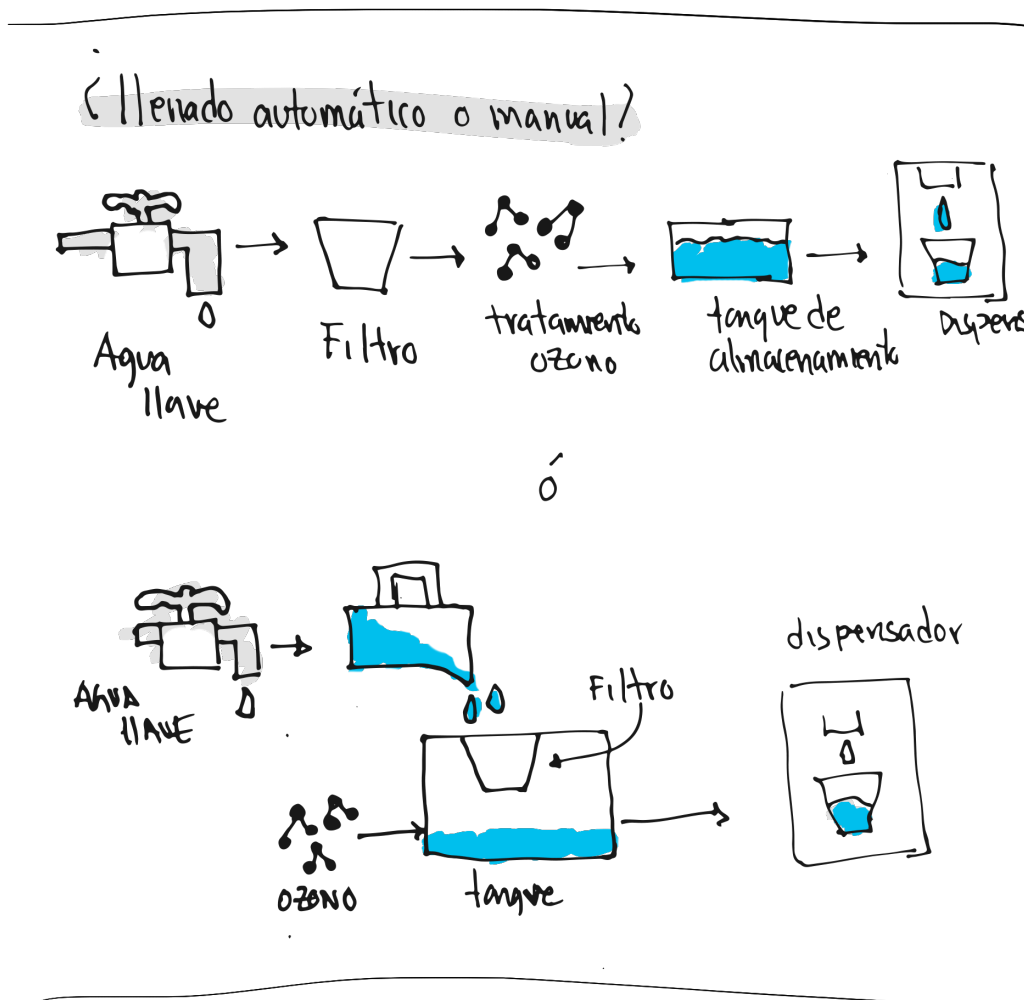 ¿llenado automático o manual?
Agua
llave
Filtro
tratamiento
ozono
tanque de
almacenamiento
Dispens
ó
AGUA
llAVE
Filtro
dispensador
OZONO
tanque